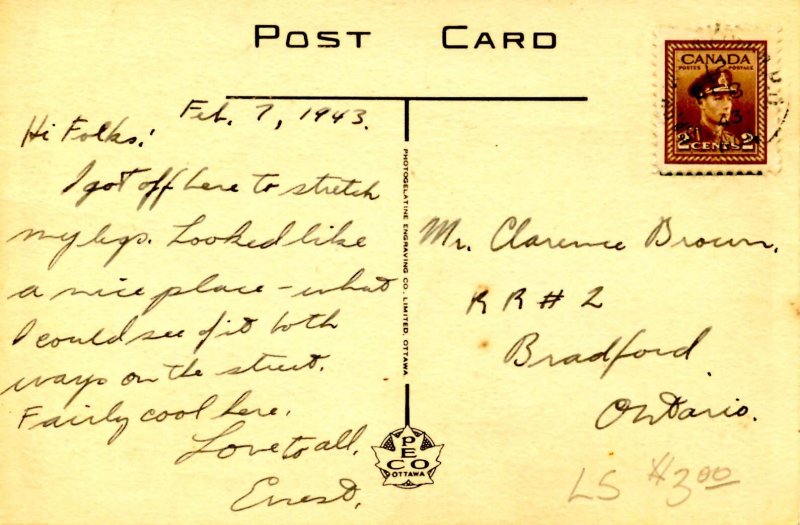 POST CARD
CANADA
POSTES POSTAGE
2 CENTS 2
Feb. 7, 1943.
Hi Folks!
I got off here to stretch
my legs. Looked like
a nice place - what
I could see of it both
ways on the street.
Fairly cool here.
Love to all,
Ernest.
PHOTOGELATINE ENGRAVING CO., LIMITED, OTTAWA
PECO
OTTAWA
Mr. Clarence Brown,
R R # 2
Bradford
Ontario.
LS $3.00